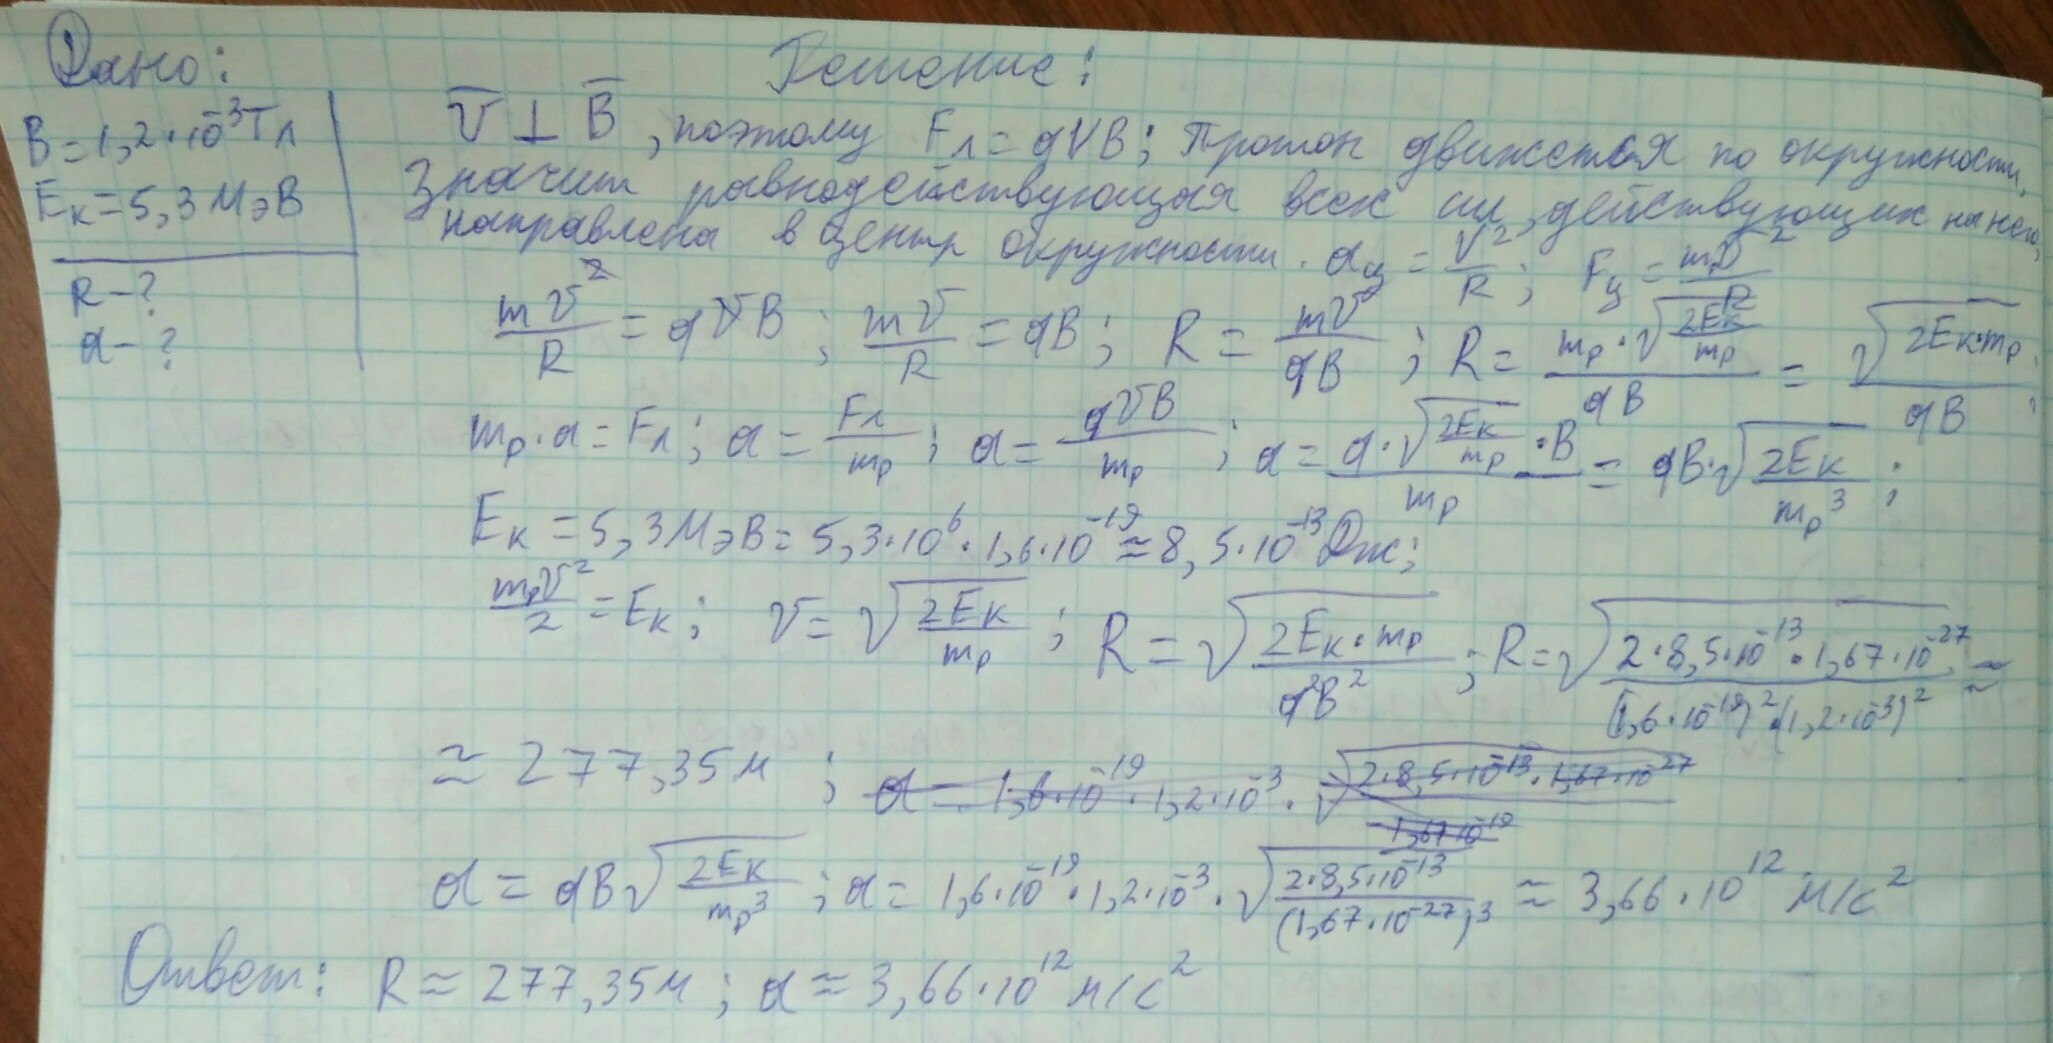 Дано:
B=1,2·10⁻³Тл
Eк=5,3МэВ
R-?
a-?
Решение:
v̄⊥B̄, поэтому Fл=qVB; Протон движется по окружности.
Значит равнодействующая всех сил, действующих на него,
направлена в центр окружности. aц=V²/R; Fц=mv²/R
mv²/R=qvB; mv/R=qB; R=mv/qB; R=mp·√(2Eк/mp)/qB=√(2Eк·mp)/qB;
mp·a=Fл; a=Fл/mp; a=qvB/mp; a=q·√(2Eк/mp)·B/mp=qB·√(2Eк/mp³);
Eк=5,3МэВ=5,3·10⁶·1,6·10⁻¹⁹≈8,5·10⁻¹³Дж;
mpv²/2=Eк; v=√(2Eк/mp); R=√(2Eк·mp/q²B²); R=√(2·8,5·10⁻¹³·1,67·10⁻²⁷/(1,6·10⁻¹⁹)²·(1,2·10⁻³)²)≈
≈277,35м; a=1,6·10⁻¹⁹·1,2·10⁻³·√(2·8,5·10⁻¹³·1,67·10⁻²⁷/1,67·10⁻¹⁹)
a=qB√(2Eк/mp³); a=1,6·10⁻¹⁹·1,2·10⁻³·√(2·8,5·10⁻¹³/(1,67·10⁻²⁷)³)≈3,66·10¹²м/с²
Ответ: R≈277,35м; a≈3,66·10¹²м/с²